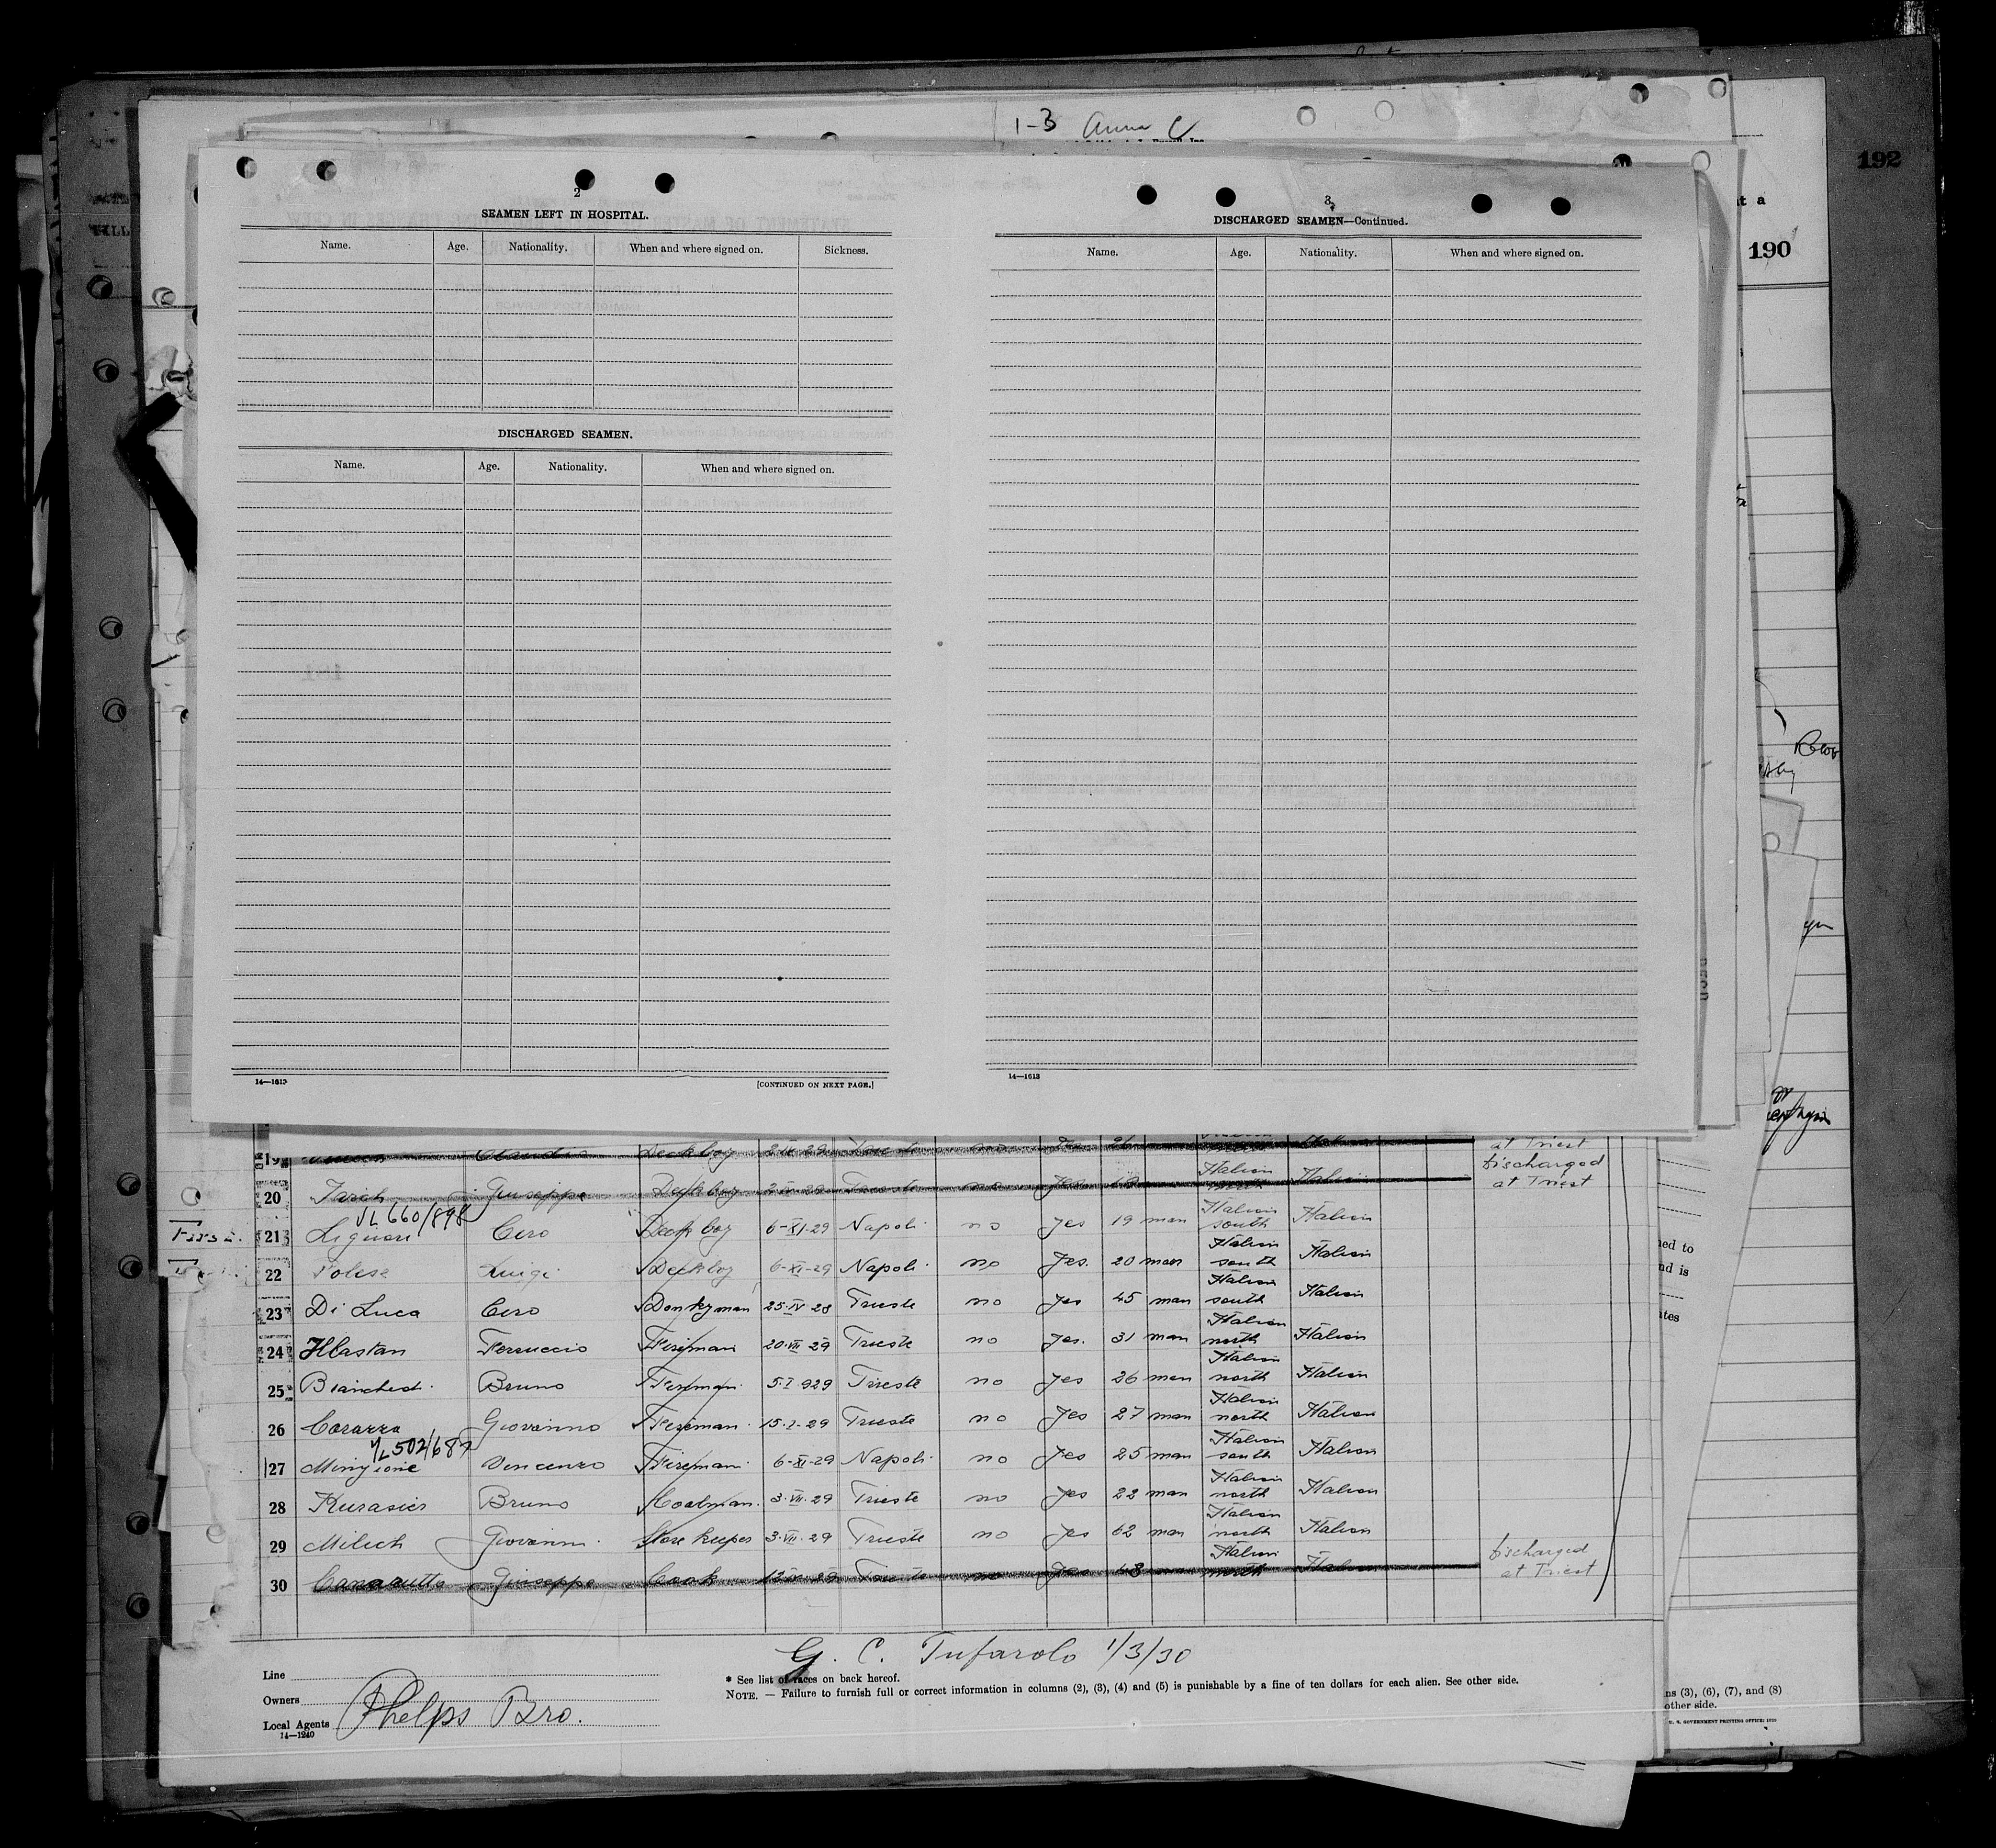 1-3 Anna C
192
190
2
SEAMEN LEFT IN HOSPITAL.
Name. Age. Nationality. When and where signed on. Sickness.
DISCHARGED SEAMEN.
Name. Age. Nationality. When and where signed on.
14—1613
[CONTINUED ON NEXT PAGE.]
3
DISCHARGED SEAMEN—Continued.
Name. Age. Nationality. When and where signed on.
14—1613
19 Claudio Deckboy 2-IX-29 Trieste no Yes at Triest
20 Giuseppe Deckboy Trieste no Yes 18 Italian north Italian Discharged at Triest
VL 660/898
21 Liguori Ciro Deckboy 6-XI-29 Napoli no Yes 19 man Italian south Italian
22 Polise Luigi Deckboy 6-XI-29 Napoli no Yes. 20 man Italian south Italian
23 Di Luca Ciro Donkyman 25-IV-28 Trieste no Yes 45 man Italian south Italian
24 Hlastan Ferruccio Fireman 20-VII-29 Trieste no Yes. 31 man Italian north Italian
25 Bruno Fireman 5-I-929 Trieste no Yes 26 man Italian north Italian
26 Giovanno Fireman 15-I-29 Trieste no Yes 27 man Italian north Italian
VL 502/682
27 Mingione Vincenzo Fireman 6-XI-29 Napoli no Yes 25 man Italian south Italian
28 Bruno Coalman 3-VII-29 Trieste no Yes 22 man Italian north Italian
29 Milich Giovanni Store keeper 3-VII-29 Trieste no Yes 62 man Italian north Italian
30 Canarutto Giuseppe Cook Trieste no Yes 48 Italian north Italian Discharged at Triest
G. C. Tufarolo 1/3/30
Line
* See list of races on back hereof.
Owners
NOTE. — Failure to furnish full or correct information in columns (2), (3), (4) and (5) is punishable by a fine of ten dollars for each alien. See other side.
Local Agents Phelps Bro.
14—1240
ned to
nd is
ates
ns (3), (6), (7), and (8)
other side.
U. S. GOVERNMENT PRINTING OFFICE: 1929